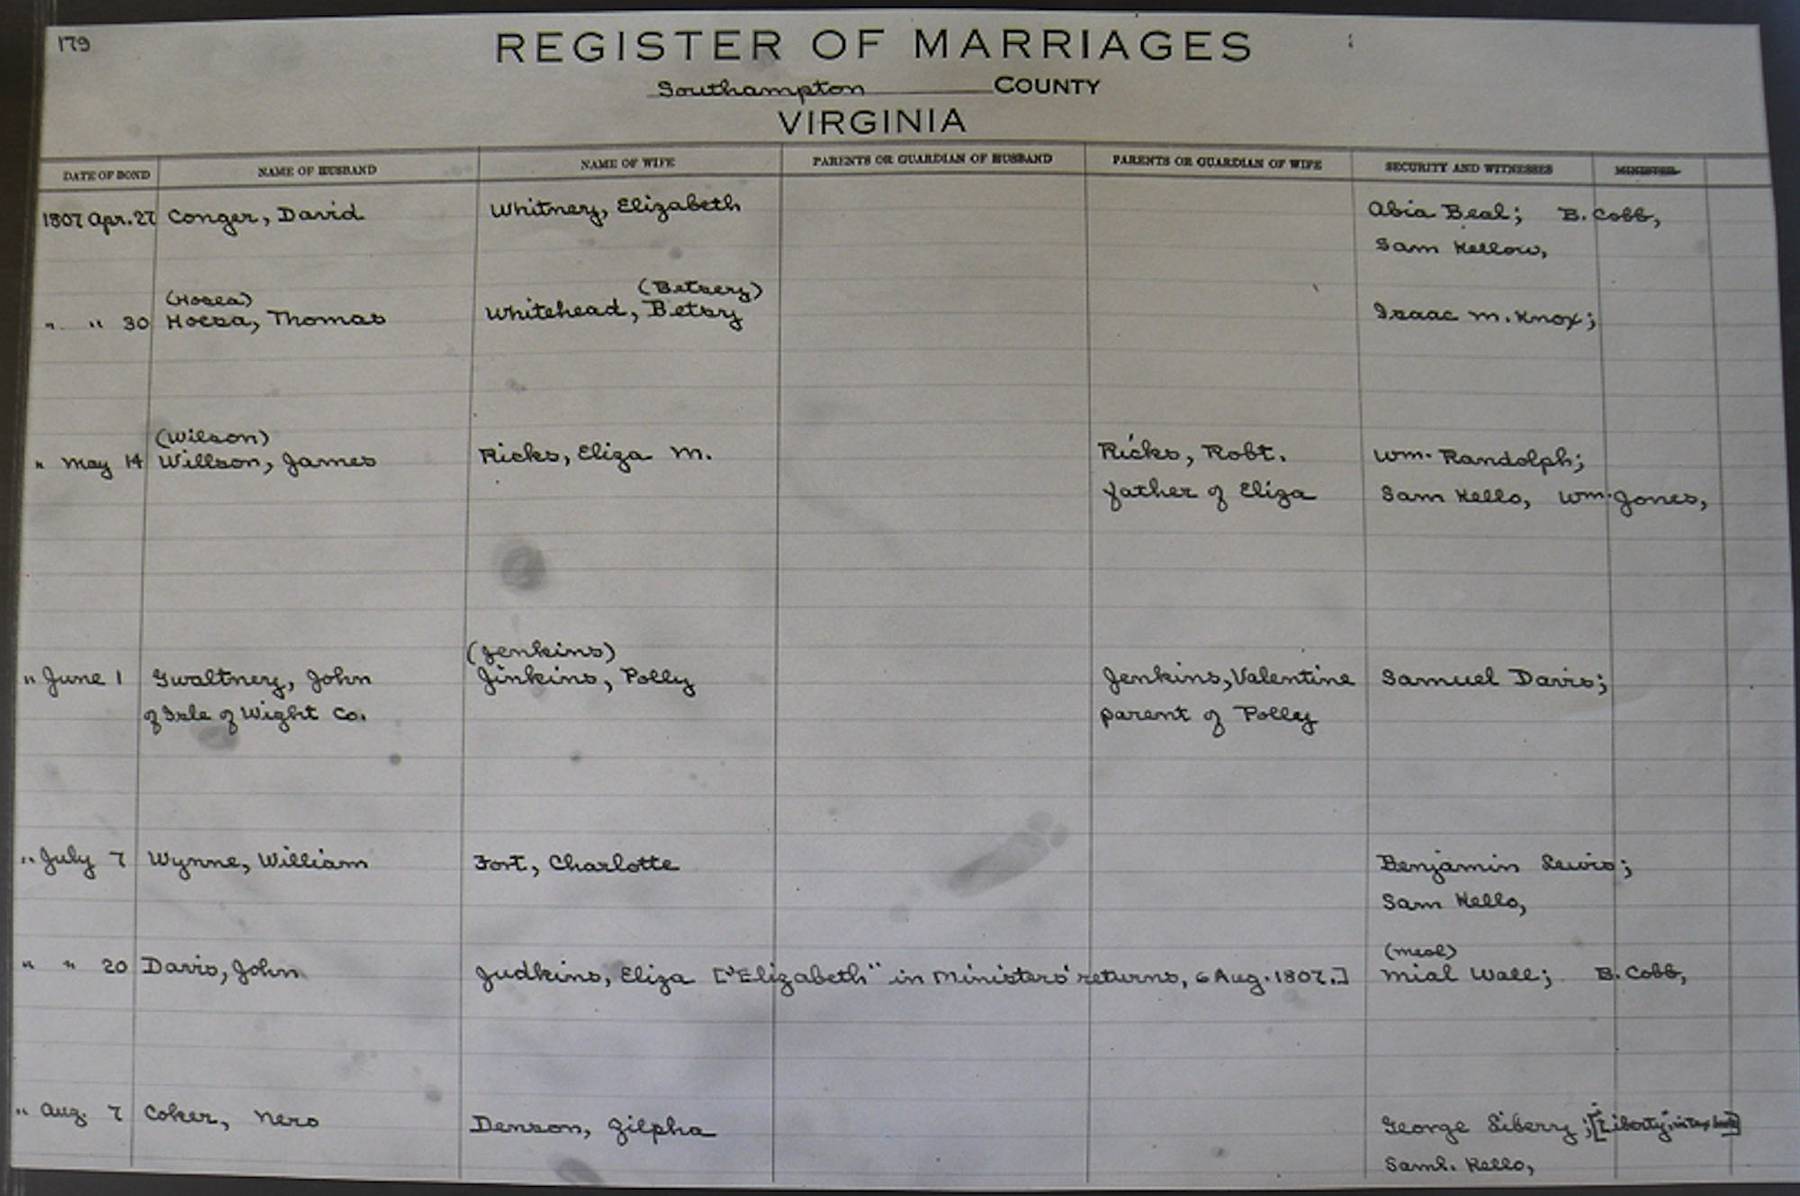 179
REGISTER OF MARRIAGES
Southampton COUNTY
VIRGINIA
DATE OF BOND NAME OF HUSBAND NAME OF WIFE PARENTS OR GUARDIAN OF HUSBAND PARENTS OR GUARDIAN OF WIFE SECURITY AND WITNESSES MINISTER
1807 Apr. 27 Conger, David Whitney, Elizabeth Abia Beal; B. Cobb,
Sam Kellow,
(Hosea) (Betsey)
" " 30 Hocsa, Thomas Whitehead, Betsy Isaac M. Knox;
(Wilson)
" May 14 Willson, James Ricks, Eliza M. Ricks, Robt. Wm. Randolph;
father of Eliza Sam Kello, Wm. Jones,
(Jenkins)
" June 1 Gwaltney, John Jinkins, Polly Jenkins, Valentine Samuel Davis;
of Isle of Wight Co. parent of Polly
" July 7 Wynne, William Fort, Charlotte Benjamin Lewis;
Sam Kello,
(Meal)
" " 20 Davis, John Judkins, Eliza ["Elizabeth" in Ministers' returns, 6 Aug. 1807.] Mial Wall; B. Cobb,
" Aug. 7 Coker, Nero Denson, Zilpha George Liberry; ["Liberty" in tax book]
Saml. Kello,